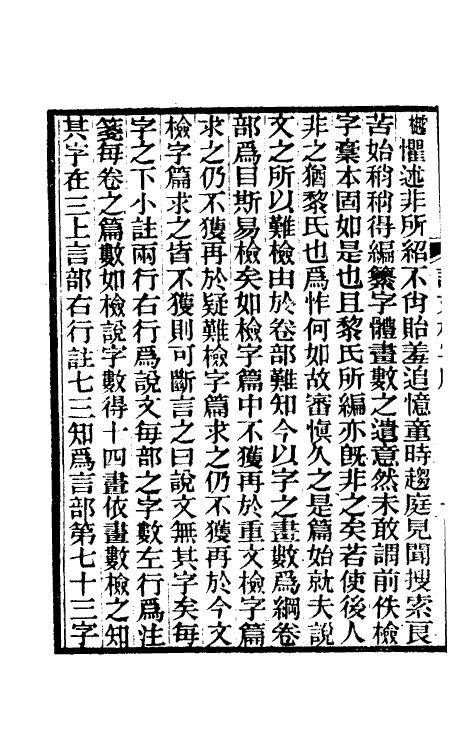 樾懼述非所紹不肖貽羞追憶童時趨庭見聞搜索良
苦始稍稍得編纂字體畫數之遺意然未敢謂前佚檢
字稾本固如是也且黎氏所編亦旣非之矣若使後人
非之猶黎氏也爲怍何如故審愼久之是篇始就夫說
文之所以難檢由於卷部難知今以字之畫數爲綱卷
部爲目斯易檢矣如檢字篇中不獲再於重文檢字篇
求之仍不獲再於疑難檢字篇求之仍不獲再於今文
檢字篇求之皆不獲則可斷言之曰說文無其字矣每
字之下小註兩行右行爲說文每部之字數左行爲注
箋每卷之篇數如檢說字數得十四畫依畫數檢之知
其字在三上言部右行註七三知爲言部第七十三字